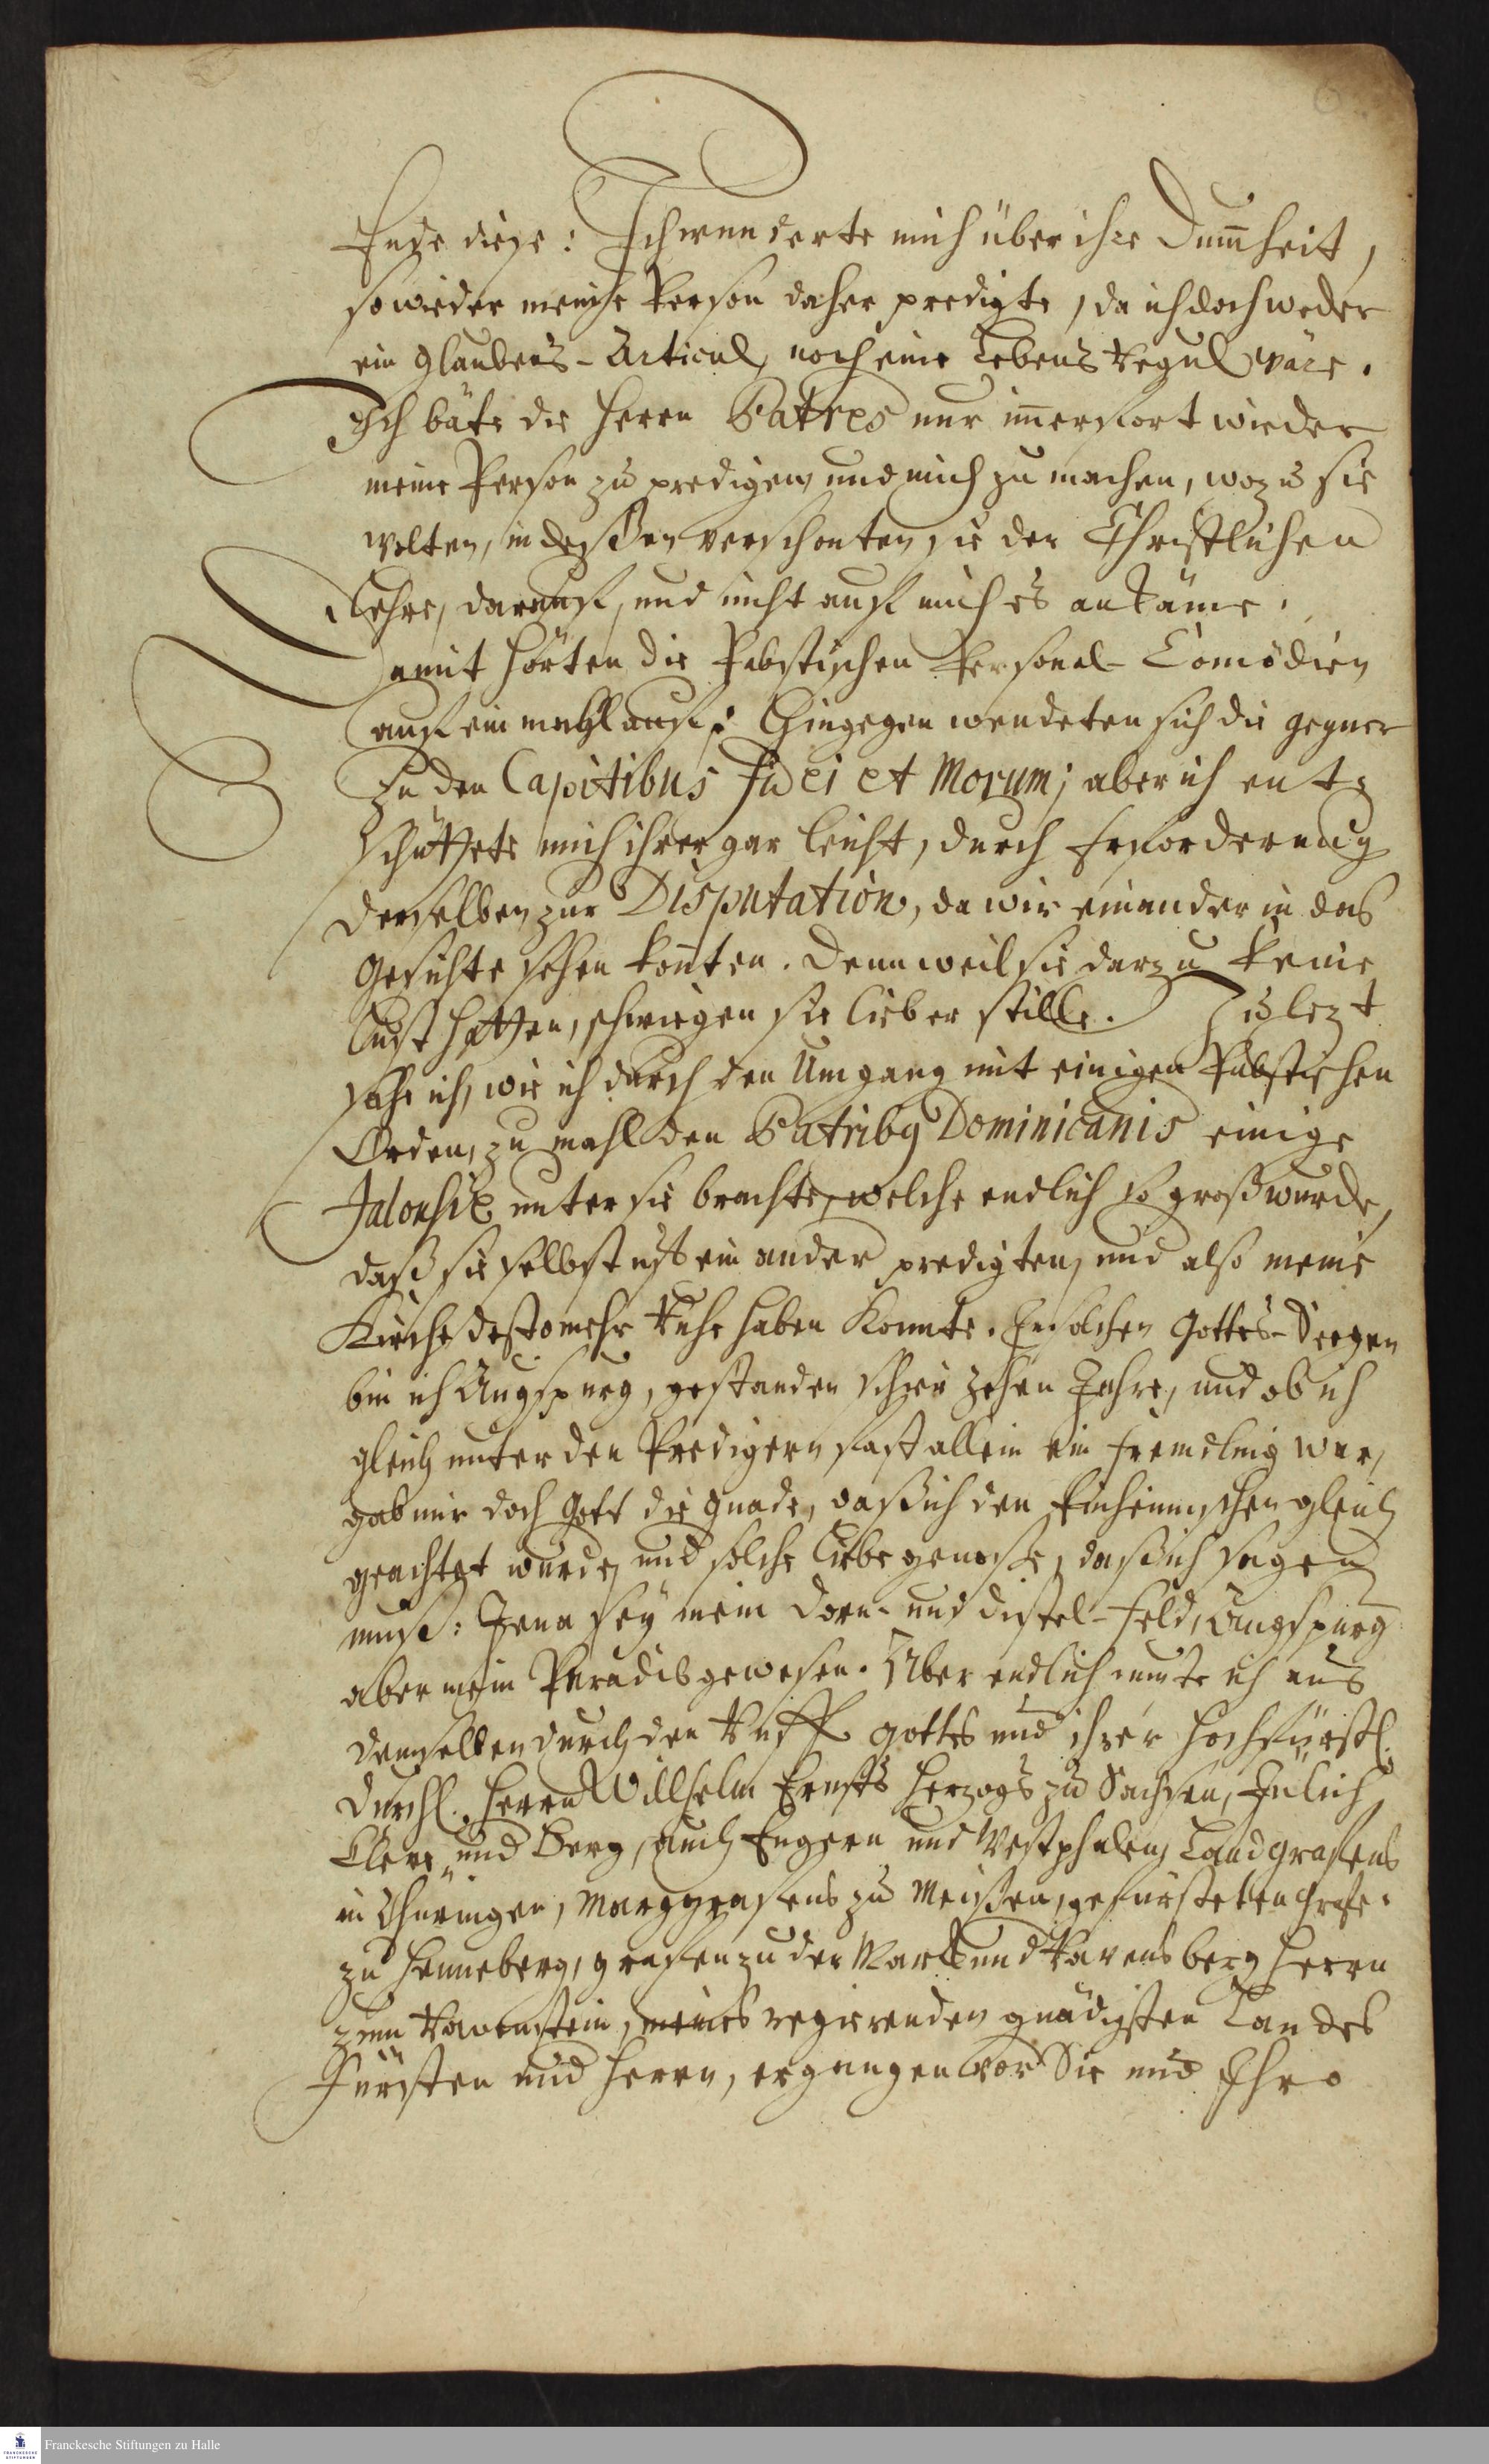 Ende diese: Ich wunderte mich über ihre Dum̅heit,
so wieder meine Person daher predigte, da ich doch weder
ein Glaubens-Articul, noch eine Lebens Regul wäre.
Ich bäte die Herrn Patres nur im̅erfort wieder
meine Person zu predigen, und mich zu machen, wozu sie
wolten, indessen verschonten sie der Christlichen
Lehre, darauf, und nicht auf mich es ankäme.
Damit hörten die Pabstischen Personal-Comödien
auf einmahl auf: Hingegen wendeten sich die gegner
zu den Capitibus fidei et Morum; aber ich ent-
schüttete mich ihrer gar leicht, durch Erforderung
derselben zur Disputation, da wir einander in das
Gesichte sehen kon̅ten. Denn weil sie darzu keine
Lust hatten, schwiegen sie lieber stille. Zulezt
sahe ich, wie ich durch den Umgang mit einigen Pabstischen
Orden, zumahl den Patribꝰ Dominicanis einige
Jalousie unter sie brachte, welche endlich so groß wurde,
daß sie selbst uf ein ander predigten, und also meine
Kirche desto mehr Ruhe haben konnte. In solchen Gottes-Seegen
bin ich Augspurg, gestanden schier zehen Jahre, und ob ich
gleich unter den Predigern fast allein ein Fremdling war,
gab mir doch Gott die Gnade, daß ich den Einheimischen gleich
geachtet wurde, und solche Liebe genosse, daß ich sagen
muß: Jena sey mein Dorn- und Distel-Feld, Augspurg
aber mein Paradis gewesen. Aber endlich muste ich aus
demselben durch den Ruff Gottes und ihrer Hochfürstl.
Durchl. Herrn Willhelm Ernsts Herzogs zu Sachsen, Jülich,
Cleve und Berg, auch Engern und Westphalen, Landgrafens
in Thüringen, Marggrafens zu Meissen, gefürsteten Grafe.
zu Henneberg, Grafen zu der Marck und Ravensberg Herrn
zum Ravenstein, meines regierenden gnädigsten Landes
Fürsten und Herrn, ergangen vor Sie und Ihro
Franckesche Stiftungen zu Halle